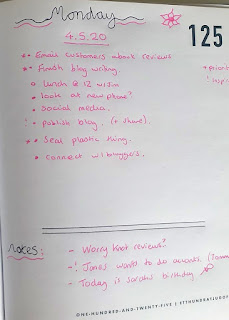 Monday
125
4.5.20
* * Email customers about reviews
* * Finish blog writing
o lunch @ 12 w/
• look at new phone?
• social media.
! • publish blog. (+ share).
* * Seal plastic thing.
• connect w/ bloggers.
NOTES:
- Worry Knot reviews?
- ! James wants to do
- Today is sarahs birthday
ONE-HUNDRED-AND-TWENTY-FIVE |